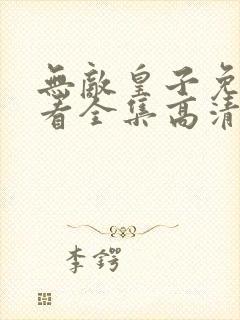 無敵皇子免
看全集高清
李鍔